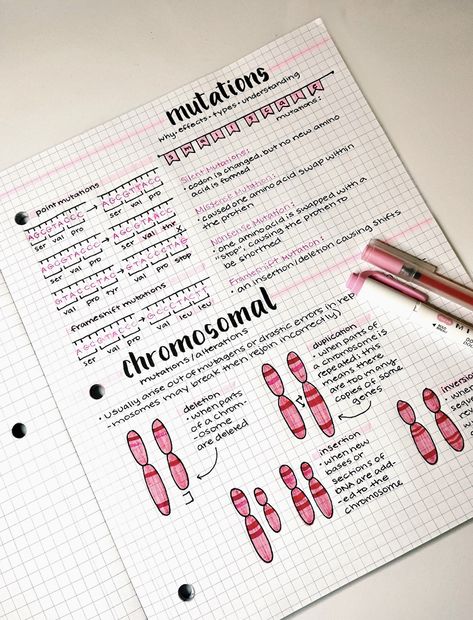 mutations
why•effects•types•understanding
SMALL SCALE
mutations:
Silent Mutations:
• codon is changed, but no new amino
acid is formed
Missense Mutation:
• caused one amino acid swap within
the protien
Nonsense Mutation:
• one amino acid is swapped with a
"stop", causing the protien to
be shorthed
Frameshift Mutation:
• an insertion/deletion causing shifts
point mutations
AGCGTACCC
ser val pro
AGCGTTACCC
ser val pro
AGCGTACCC
ser val pro
AGCGT
ser val thr
GTACCCTAC
val pro tyr
GTACCCTAG
val pro stop
frameshift mutations
AGCGTACCC
ser val pro
ser val leu leu
chromosomal
mutations/alterations
• usually arise out of mutagens or drastic errors in rep
mosomes may break then rejoin incorrectly)
deletion
• when parts
of a chrom-
osome
are deleted
duplication
• when parts of
a chromosome is
repeated; this
means there
are too many
copies of some
genes
insertion
• when new
bases or
sections of
DNA are add-
-ed to the
chromosome
inversion
• when
sequ